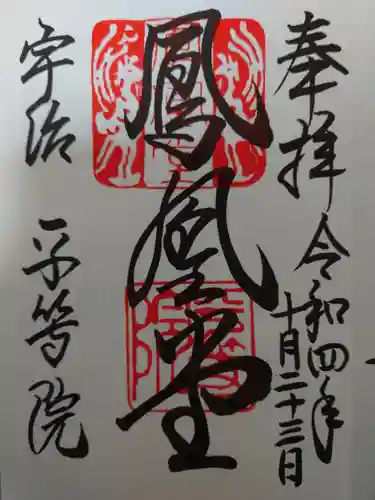 奉拝
令和四年
十月二十三日
鳳凰堂
宇治
平等院